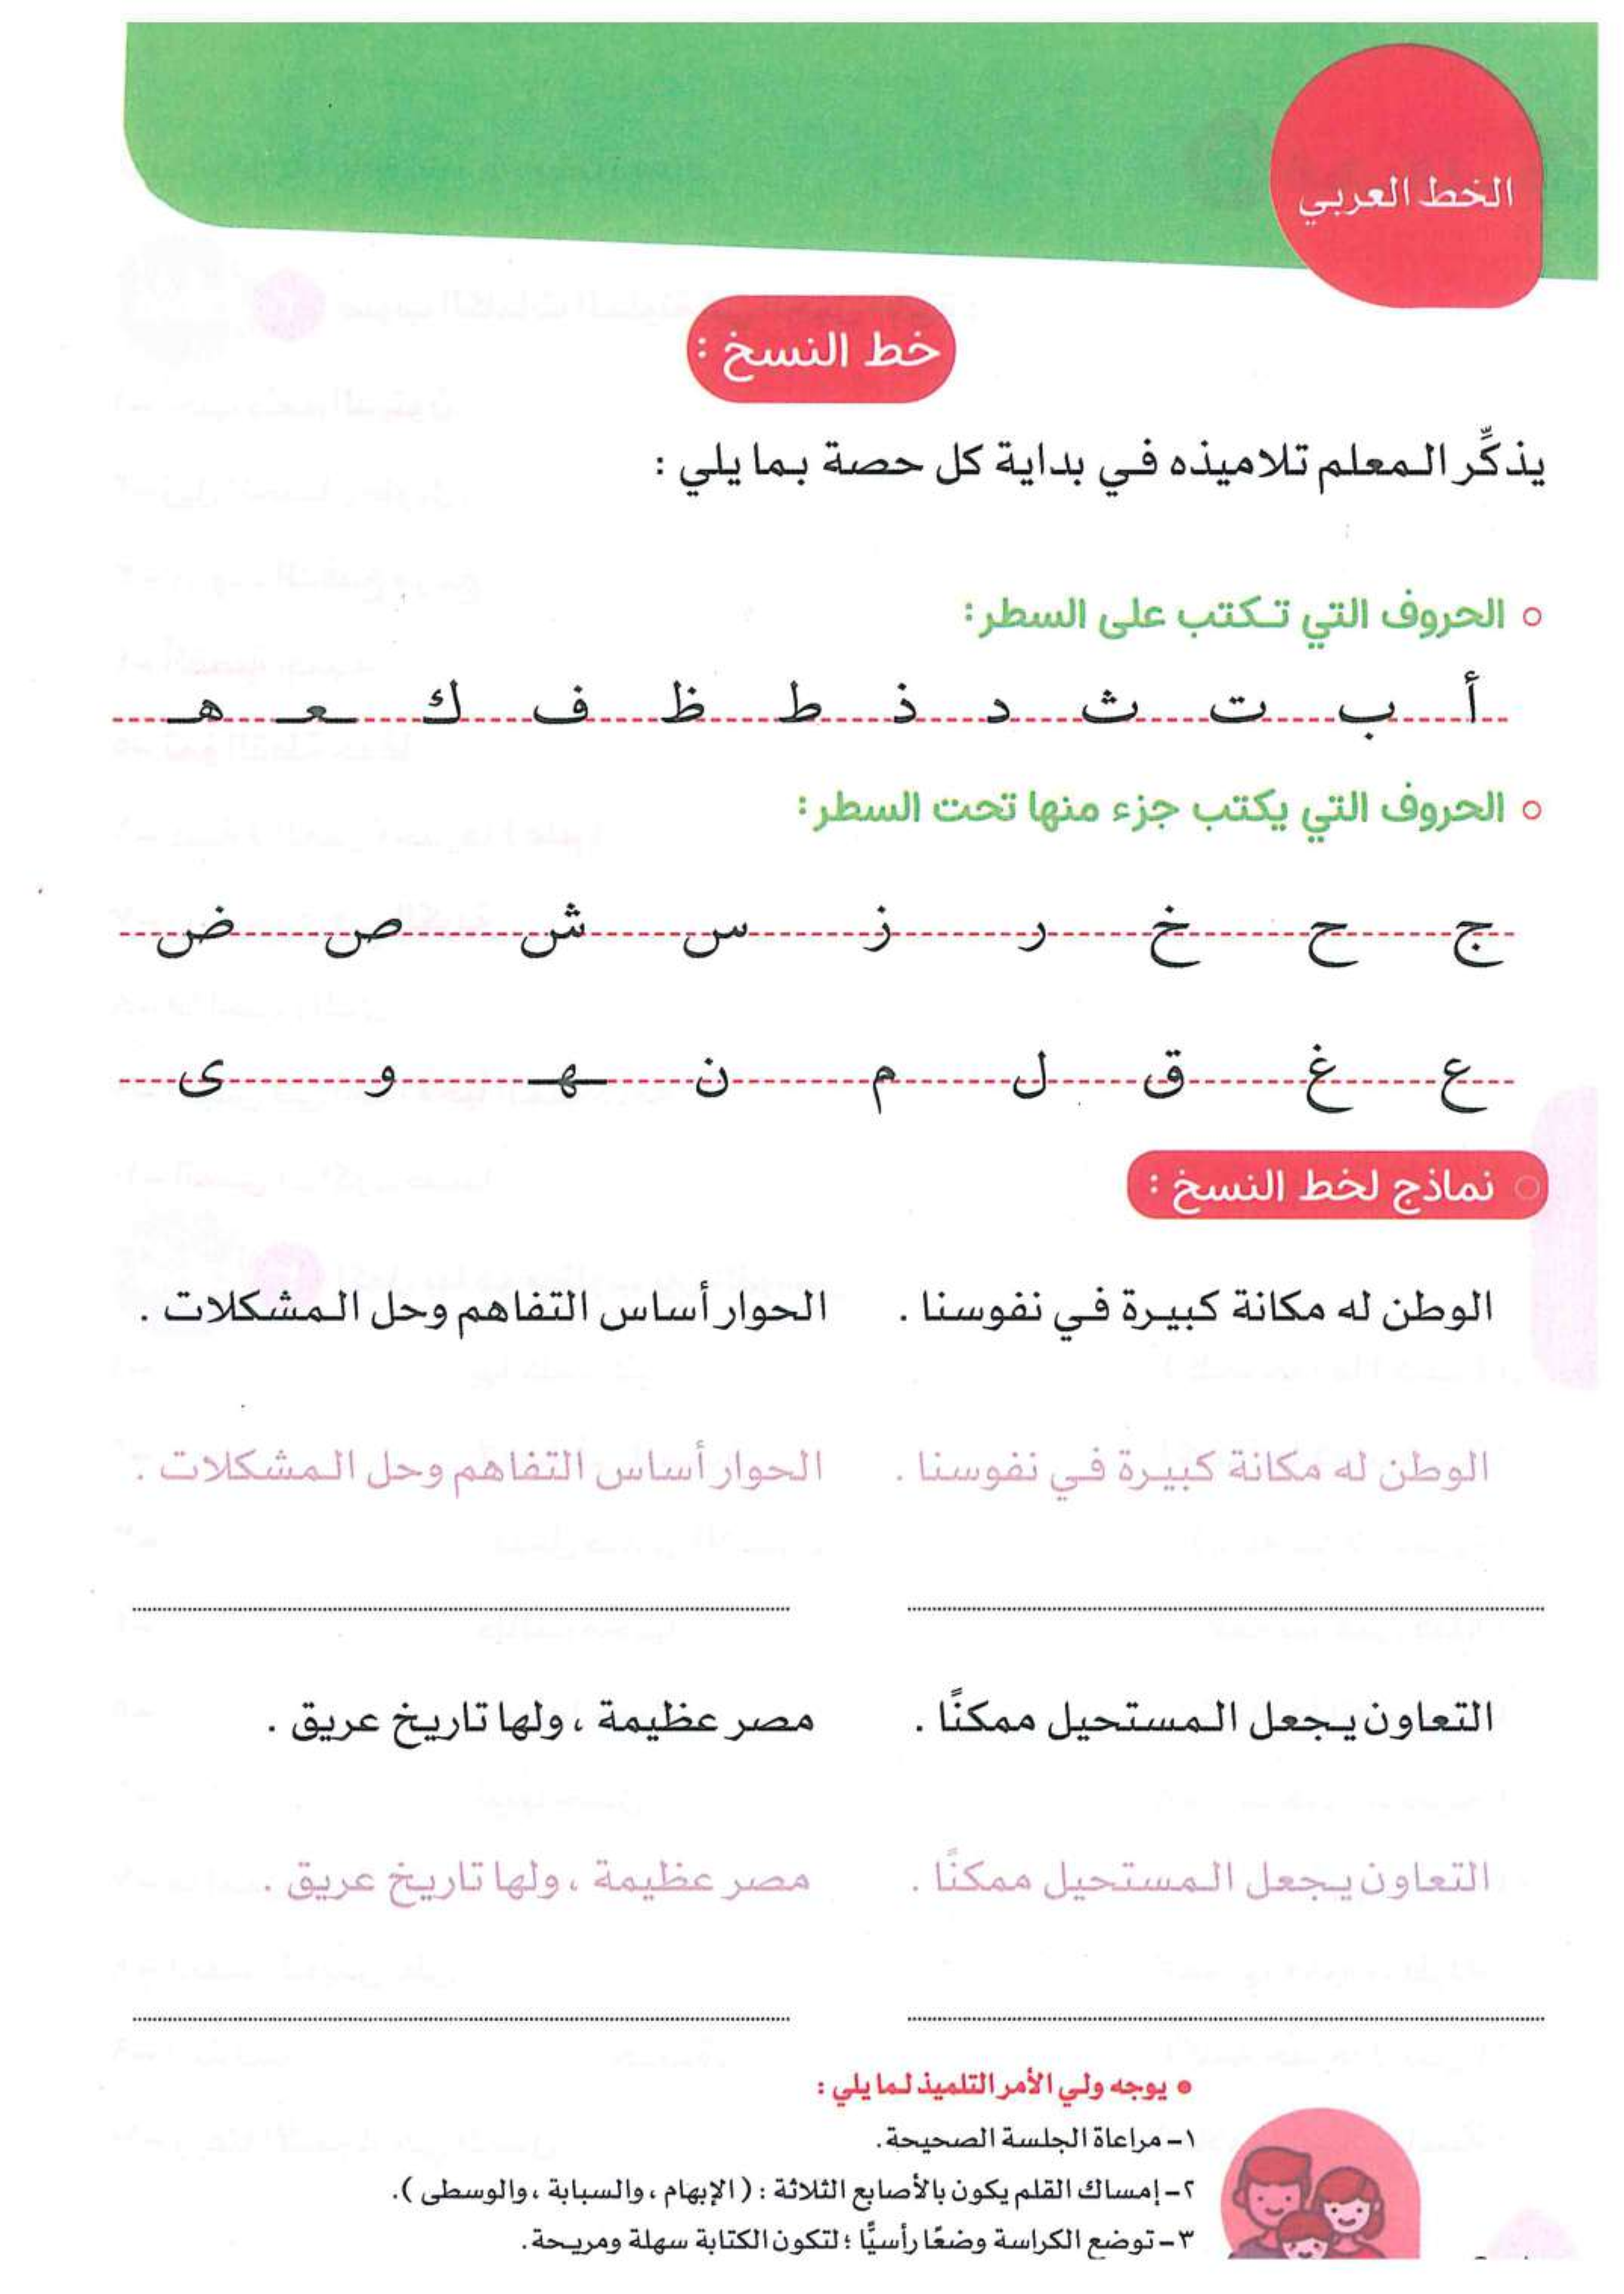 الخط العربي
خط النسخ :
يذكِّر المعلم تلاميذه في بداية كل حصة بما يلي :
الحروف التي تكتب على السطر:
أ ب ت ث د ذ ط ظ ف ك ـعـ هـ
الحروف التي يكتب جزء منها تحت السطر:
ج ح خ ر ز س ش ص ض
ع غ ق ل م ن ـهـ و ى
نماذج لخط النسخ :
الوطن له مكانة كبيرة في نفوسنا . الحوار أساس التفاهم وحل المشكلات .
الوطن له مكانة كبيرة في نفوسنا . الحوار أساس التفاهم وحل المشكلات .
التعاون يجعل المستحيل ممكنًا . مصر عظيمة ، ولها تاريخ عريق .
التعاون يجعل المستحيل ممكنًا . مصر عظيمة ، ولها تاريخ عريق .
يوجه ولي الأمر التلميذ لما يلي :
١- مراعاة الجلسة الصحيحة.
٢- إمساك القلم يكون بالأصابع الثلاثة : ( الإبهام ، والسبابة ، والوسطى ).
٣- توضع الكراسة وضعًا رأسيًّا ؛ لتكون الكتابة سهلة ومريحة.